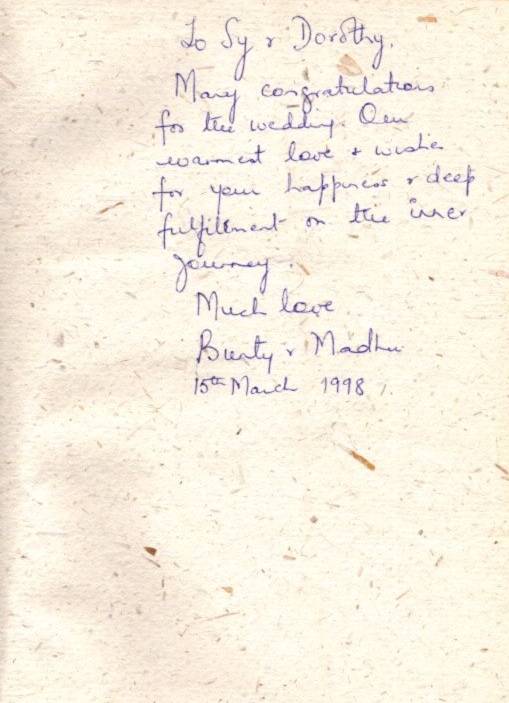 To Sy & Dorothy,
Many congratulations
for the wedding. Our
warmest love & wishes
for your happiness & deep
fulfilment on the inner
journey.
Much love
Bunty & Madhu
15th March 1998